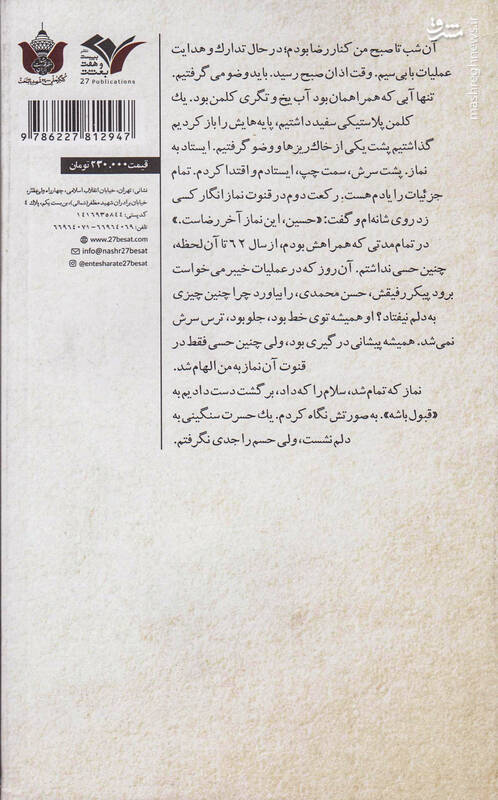 آن شب تا صبح من کنار رضا بودم؛ در حال تدارک و هدایت
عملیات با بی‌سیم. وقت اذان صبح رسید. باید وضو می‌گرفتیم.
تنها آبی که همراهمان بود آب یخ و تگری کلمن بود. یک
کلمن پلاستیکی سفید داشتیم، پایه‌هایش را باز کردیم
گذاشتیم پشت یکی از خاک‌ریزها و وضو گرفتیم. ایستاد به
نماز. پشت سرش، سمت چپ، ایستادم و اقتدا کردم. تمام
جزئیات را یادم هست. رکعت دوم در قنوت نماز انگار کسی
زد روی شانه‌ام و گفت: «حسین، این نماز آخر رضاست.»
در تمام مدتی که همراهش بودم، از سال ۶۲ تا آن لحظه،
چنین حسی نداشتم. آن روز که در عملیات خیبر می‌خواست
برود پیکر رفیقش، حسن محمدی، را بیاورد چرا چنین چیزی
به دلم نیفتاد؟ او همیشه توی خط بود، جلو بود، ترس سرش
نمی‌شد. همیشه پیشانی درگیری بود، ولی چنین حسی فقط در
قنوت آن نماز به من الهام شد.
نماز که تمام شد، سلام را که داد، برگشت دست دادیم به
«قبول باشه». به صورتش نگاه کردم. یک حسرت سنگینی به
دلم نشست، ولی حسم را جدی نگرفتم.
نشر
بیست
و هفت
بعثت
27 Publications
9 786227 812947
قیمت ۲۳۰.۰۰۰ تومان
نشانی: تهران، خیابان انقلاب اسلامی، چهارراه ولی‌عصر،
خیابان برادران شهید مظفر (شمالی)، بن‌بست یکم، پلاک ۴
کدپستی: ۱۴۱۶۹۳۵۸۴۴
تلفن: ۶۶۹۶۴۰۶۹-۶۶۹۶۴۰۷۱
www.27besat.com
info@nashr27besat
@entesharate27besat
مشرق
mashreghnews.ir